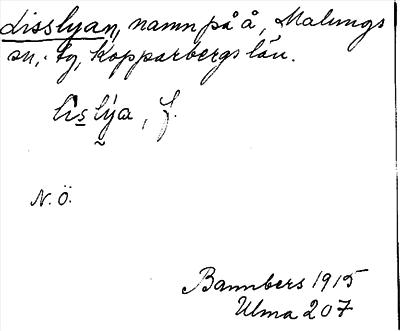 Lisslyan, namn på å, Malungs
sn, tg, Kopparbergs län.
lislýa, f.
N. Ö.
Bannbers 1915
Ulma 207